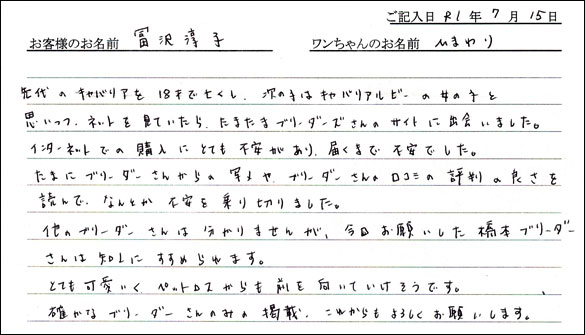 ご記入日 R1 年 7 月 15 日
お客様のお名前 冨沢 淳子 ワンちゃんのお名前 ひまわり
先代のキャバリアを18才で亡くし、次の子はキャバリアルビーの女の子と
思いつつ、ネットを見ていたら、たまたまブリーダーズさんのサイトに出会いました。
インターネットでの購入にとても不安があり、届くまで不安でした。
たまにブリーダーさんからの写メや、ブリーダーさんの口コミの評判の良さを
読んで、なんとか不安を乗り切りました。
他のブリーダーさんは分かりませんが、今回お願いした橋本ブリーダー
さんは知人にすすめられます。
とても可愛いくペットロスからも前を向いていけそうです。
確かなブリーダーさんのみの掲載、これからもよろしくお願いします。